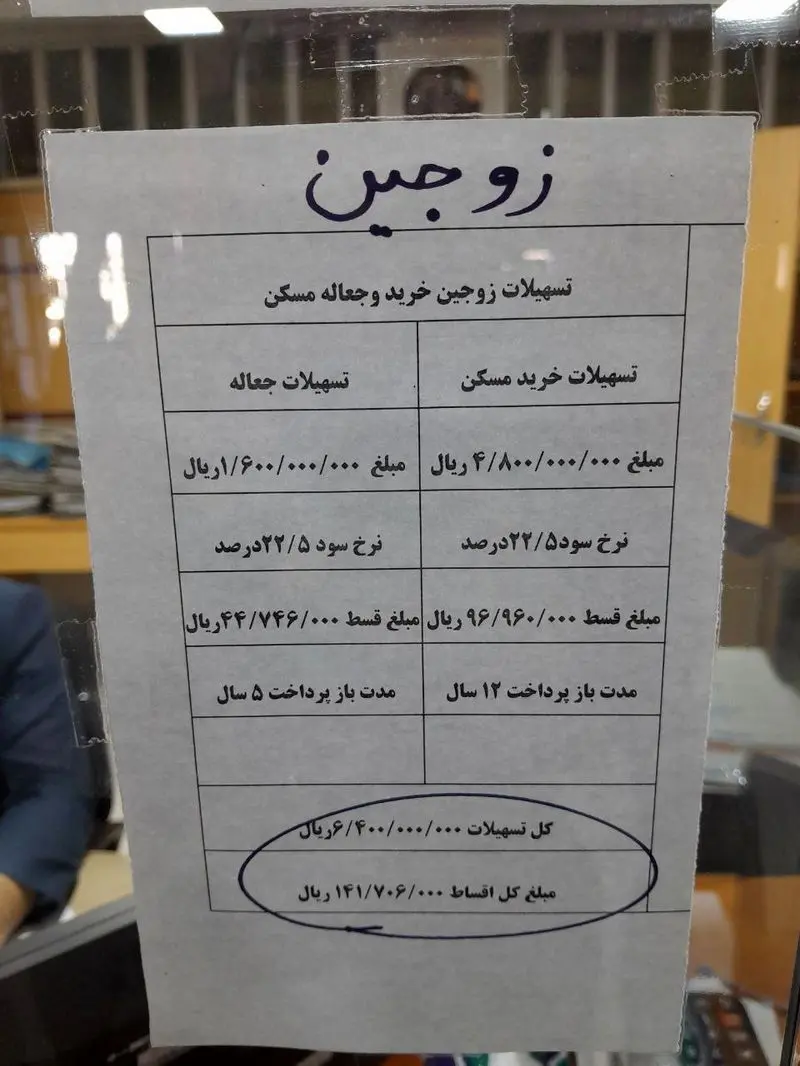 زوجین
تسهیلات زوجین خرید وجعاله مسکن
تسهیلات خرید مسکن
تسهیلات جعاله
مبلغ ۴/۸۰۰/۰۰۰/۰۰۰ ریال
مبلغ ۱/۶۰۰/۰۰۰/۰۰۰ریال
نرخ سود۲۲/۵درصد
نرخ سود ۲۲/۵درصد
مبلغ قسط ۹۶/۹۶۰/۰۰۰ ریال
مبلغ قسط ۴۴/۷۴۶/۰۰۰ریال
مدت باز پرداخت ۱۲ سال
مدت باز پرداخت ۵ سال
کل تسهیلات ۶/۴۰۰/۰۰۰/۰۰۰ریال
مبلغ کل اقساط ۱۴۱/۷۰۶/۰۰۰ ریال